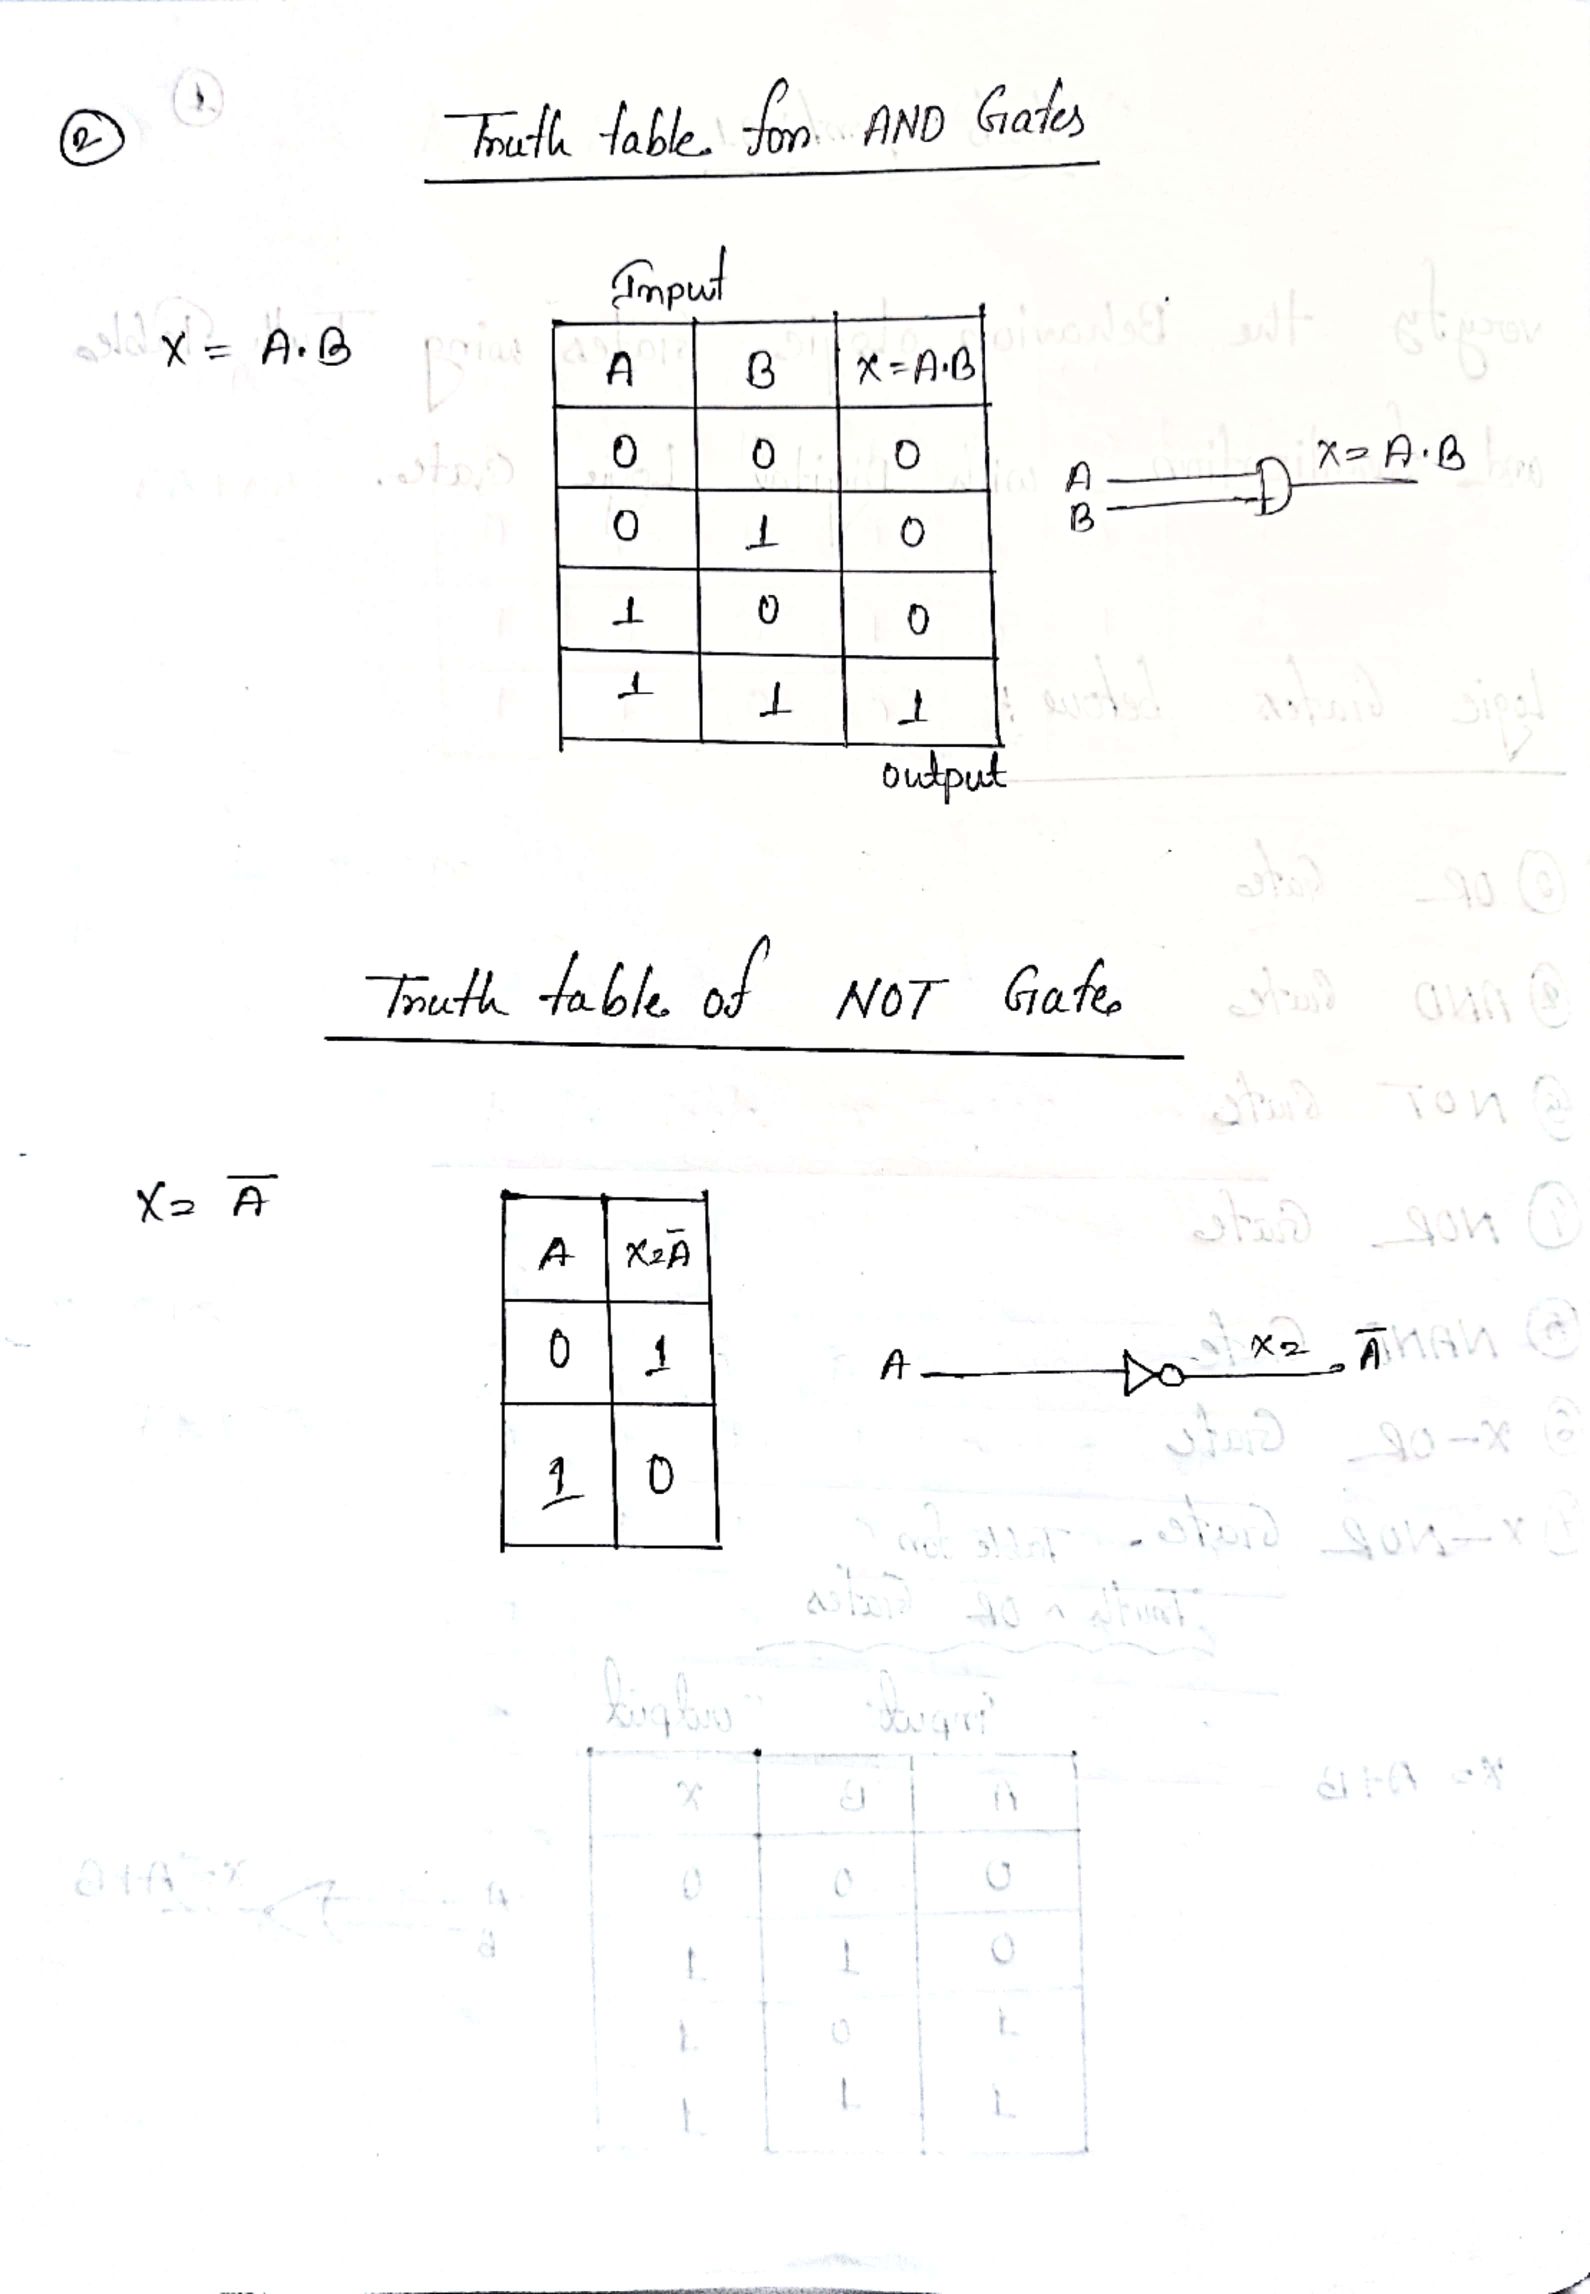 ②
Truth table for AND Gates
Input
X = A.B
A B X=A.B
0 0 0
0 1 0
1 0 0
1 1 1
output
A
B
X= A.B
Truth table of NOT Gate
X= A̅
A X=A̅
0 1
1 0
A X= A̅